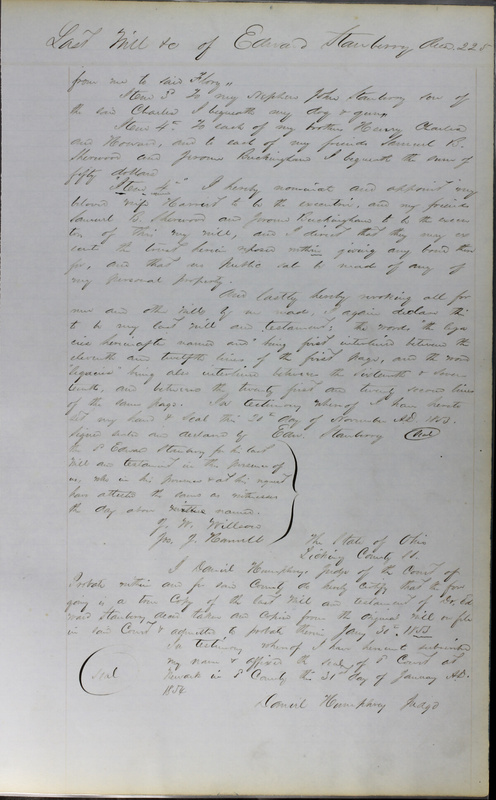 Last Will &c of Edward Stanbery Decd. 225
from me to said Flory,,
Item 3d To my Nephew John Stanbery son of
the said Charles I bequeath my dog & gun,
Item 4th To each of my brothers Henry Charles
and Howard, and to each of my friends Samuel B.
Sherwood and Jerome Buckingham I bequeath the sum of
fifty dollars
Item 4th I hereby nominate and appoint my
beloved wife Harriet to be the executrix, and my friends
Samuel B. Sherwood and Jerome Buckingham to be the execu
tors of this my will, and I direct that they may ex
ecute the trust herein reposed within giving any bond there
for, and that no public sale be made of any of
my personal property.
And lastly hereby revoking all for
mer and other wills by me made, I again declare this
to be my last will and testament; the words "the lega
cies hereinafter named and" being first interlined between the
eleventh and twelfth lines of the first page, and the word
"legacies" being also interlined between the sixteenth & seven
teenth, and between the twenty first and twenty second lines
of the same page. In testimony whereof I have hereunto
set my hand & seal this 21st day of November AD. 1853.
Signed sealed and declared by Edw. Stanbery Seal
the sd Edward Stanbery for his last
will and testament in the presence of
us, who in his presence & at his request
have attested the same as witnesses
the day above written named.
J. W. Willson
Jos. J. Hamill
The State of Ohio
Licking County Ss.
I Daniel Humphrey Judge of the Court of
Probate within and for said County do hereby certify that the fore
going is a true Copy of the last Will and testament of Dr, Ed
ward Stanbery, decd taken and copied from the original Will on file
in said Court & admitted to probate therein Jany 30th, 1853.
In testimony whereof I have hereunto subscribed
my name & affixed the seal of sd Court at
Seal Newark in sd County this 31st day of January AD.
1854
Daniel Humphrey Judge